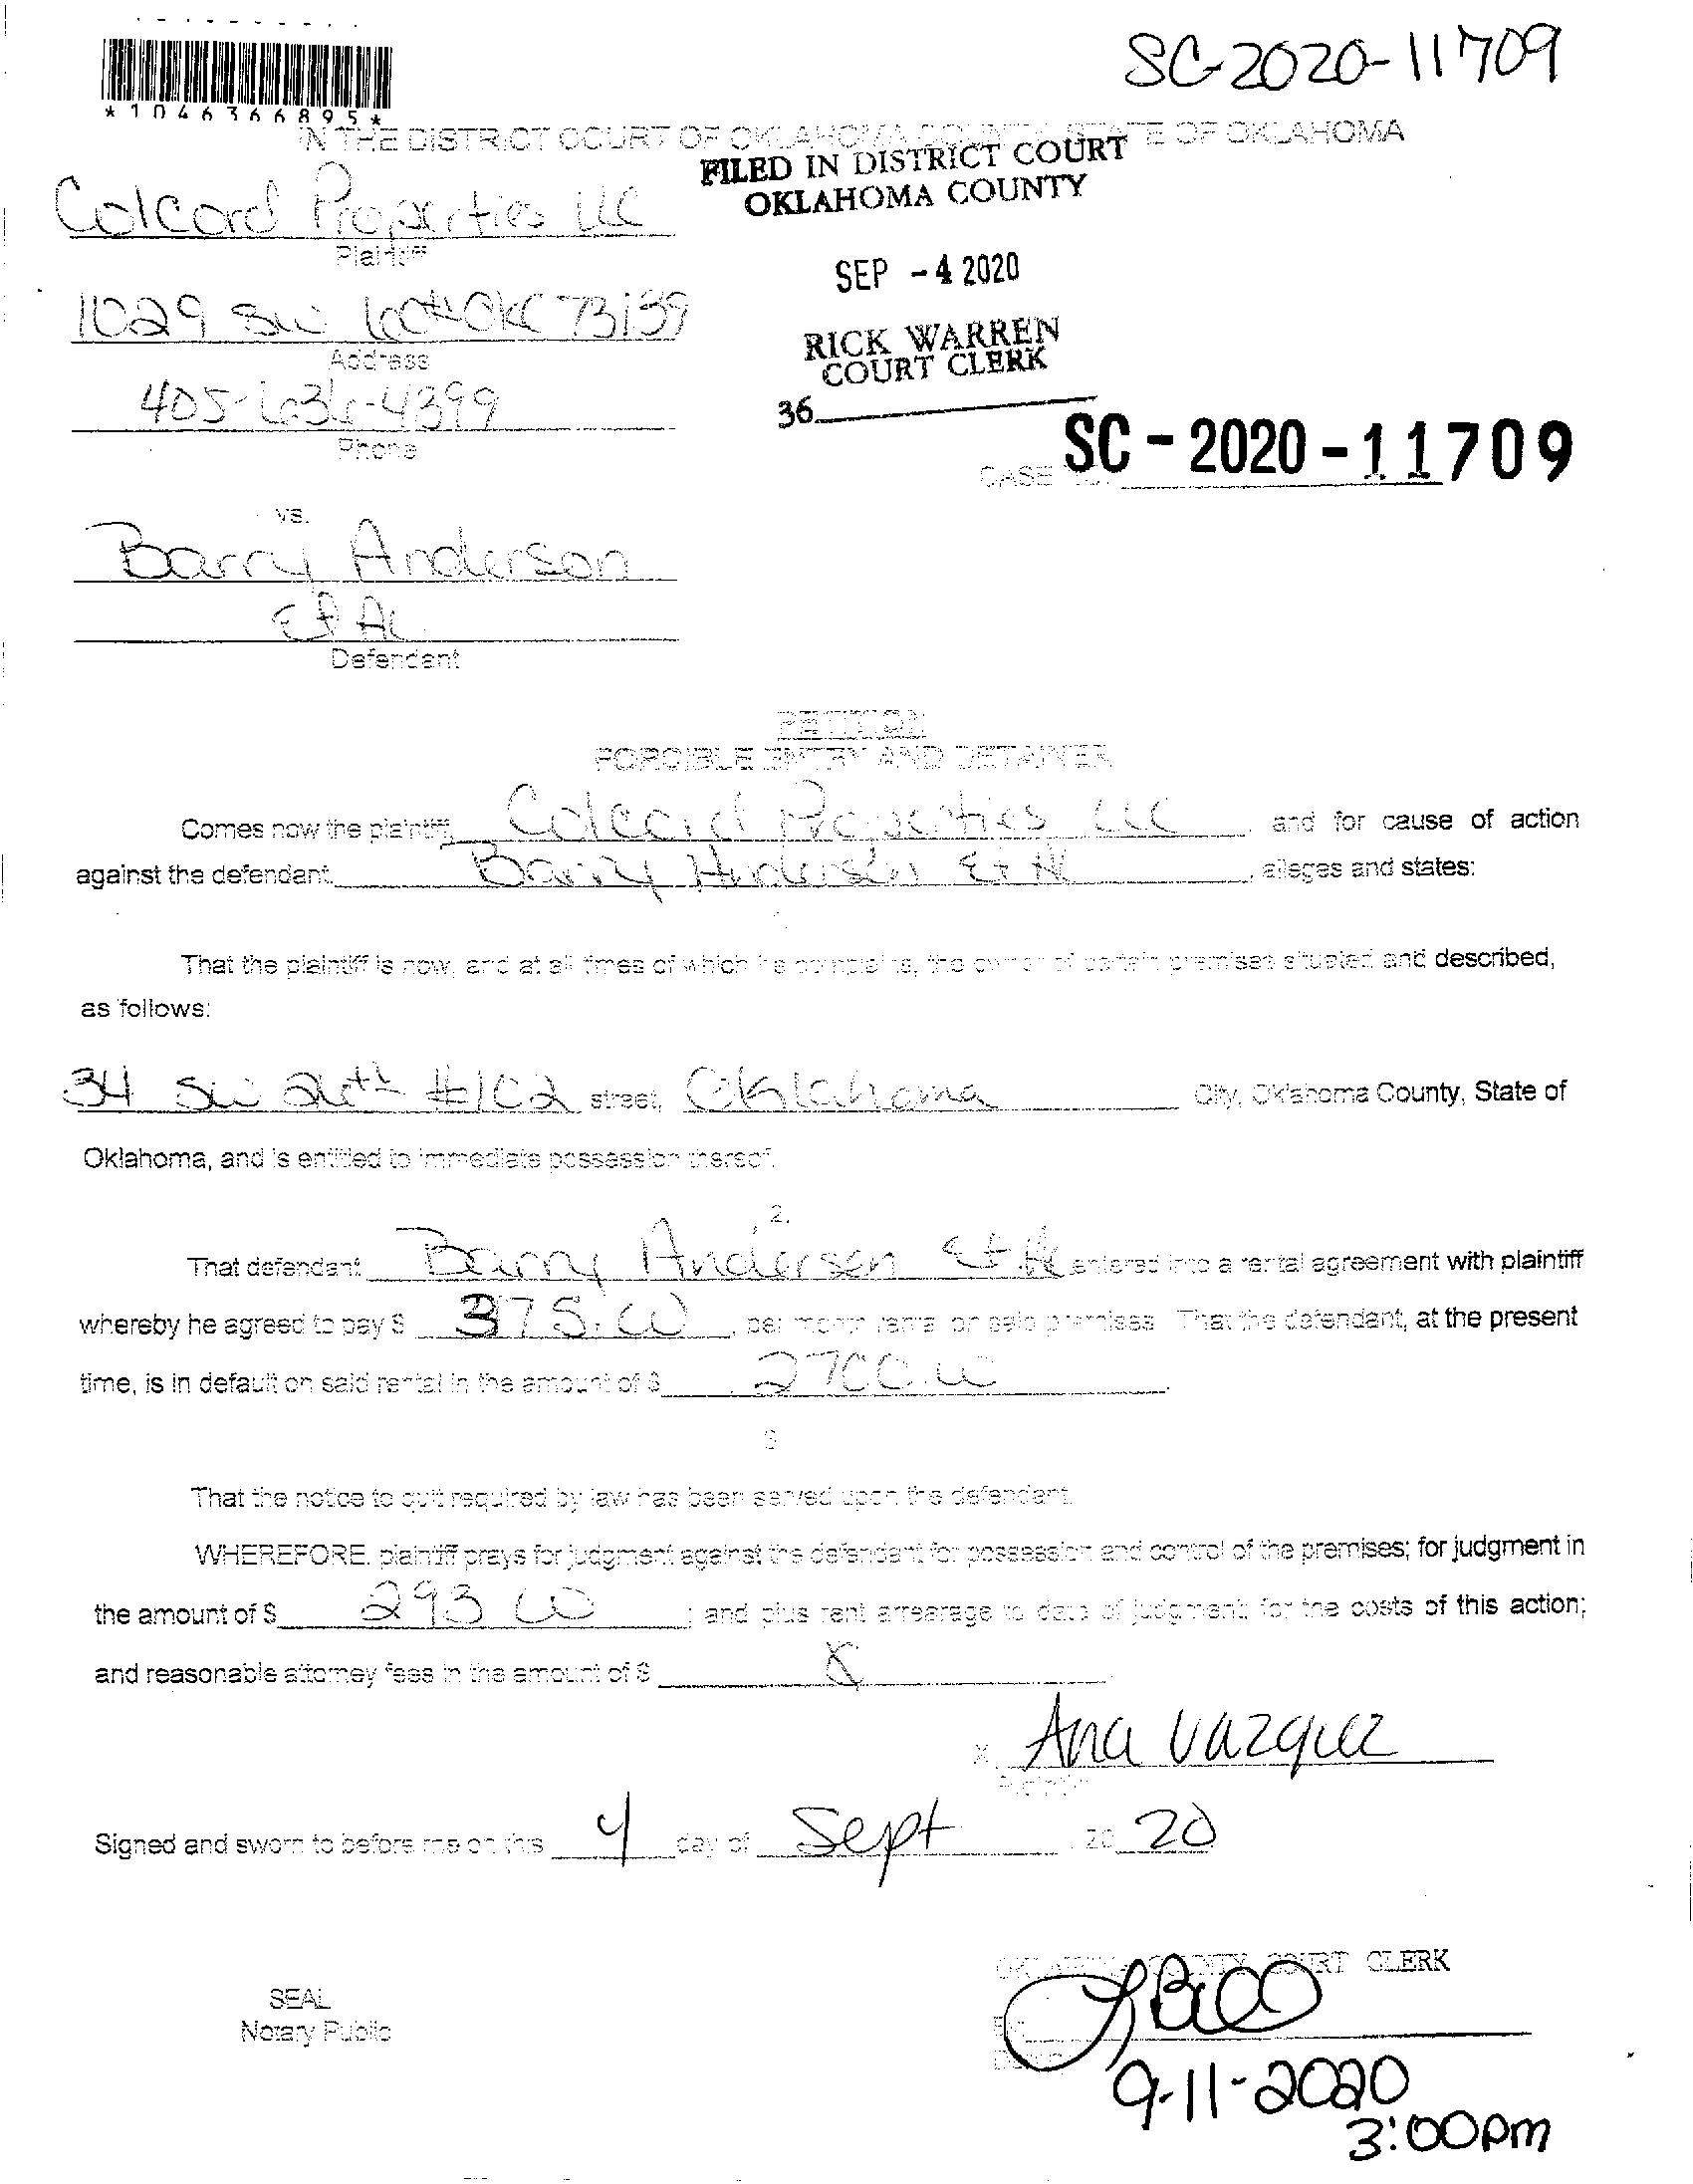 SC-2020-11709
*1046366895*
IN THE DISTRICT COURT OF OKLAHOMA COUNTY, STATE OF OKLAHOMA
FILED IN DISTRICT COURT
OKLAHOMA COUNTY
Colcord Properties LLC
Plaintiff
SEP -4 2020
1029 SW OKC 73139
Address
RICK WARREN
COURT CLERK
405-636-4399
Phone
36
CASE NO. SC-2020-11709
vs.
Barry Anderson
Et Al
Defendant
PETITION
FORCIBLE ENTRY AND DETAINER
Comes now the plaintiff, Colcord Properties LLC and for cause of action
against the defendant, Barry Anderson Et Al, alleges and states:
That the plaintiff is now, and at all times of which he complains, the owner of certain premises situated and described,
as follows:
34 SW #102 street, Oklahoma City, Oklahoma County, State of
Oklahoma, and is entitled to immediate possession thereof.
2.
That defendant Barry Anderson Et Al entered into a rental agreement with plaintiff
whereby he agreed to pay $ 375.00, per month rental on said premises. That the defendant, at the present
time, is in default on said rental in the amount of $ 2700.00
3
That the notice to quit required by law has been served upon the defendant.
WHEREFORE, plaintiff prays for judgment against the defendant for possession and control of the premises; for judgment in
the amount of $ 293 00; and plus rent arrearage to date of judgment; for the costs of this action;
and reasonable attorney fees in the amount of $
X Ana Vazquez
Plaintiff
Signed and sworn to before me on this 4 day of Sept, 20 20
OKLAHOMA COUNTY COURT CLERK
SEAL
Notary Public
9-11-2020
3:00pm